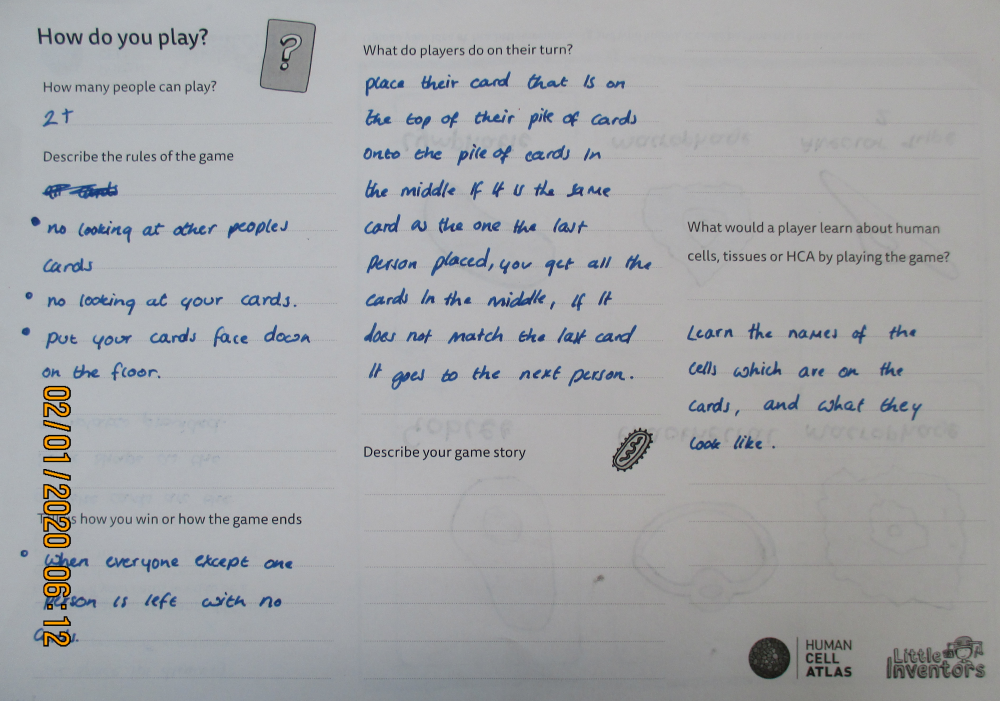 How do you play?
?
How many people can play?
2+
Describe the rules of the game
no looking at other peoples
cards
no looking at your cards.
put your cards face down
on the floor.
is how you win or how the game ends
When everyone except one
person is left with no
What do players do on their turn?
place their card that is on
the top of their pile of cards
onto the pile of cards in
the middle if it is the same
card as the one the last
person placed, you get all the
cards in the middle, if it
does not match the last card
It goes to the next person.
Describe your game story
What would a player learn about human
cells, tissues or HCA by playing the game?
Learn the names of the
cells which are on the
cards, and what they
look like.
HUMAN
CELL
ATLAS
Little
Inventors
02/01/2020 06:12